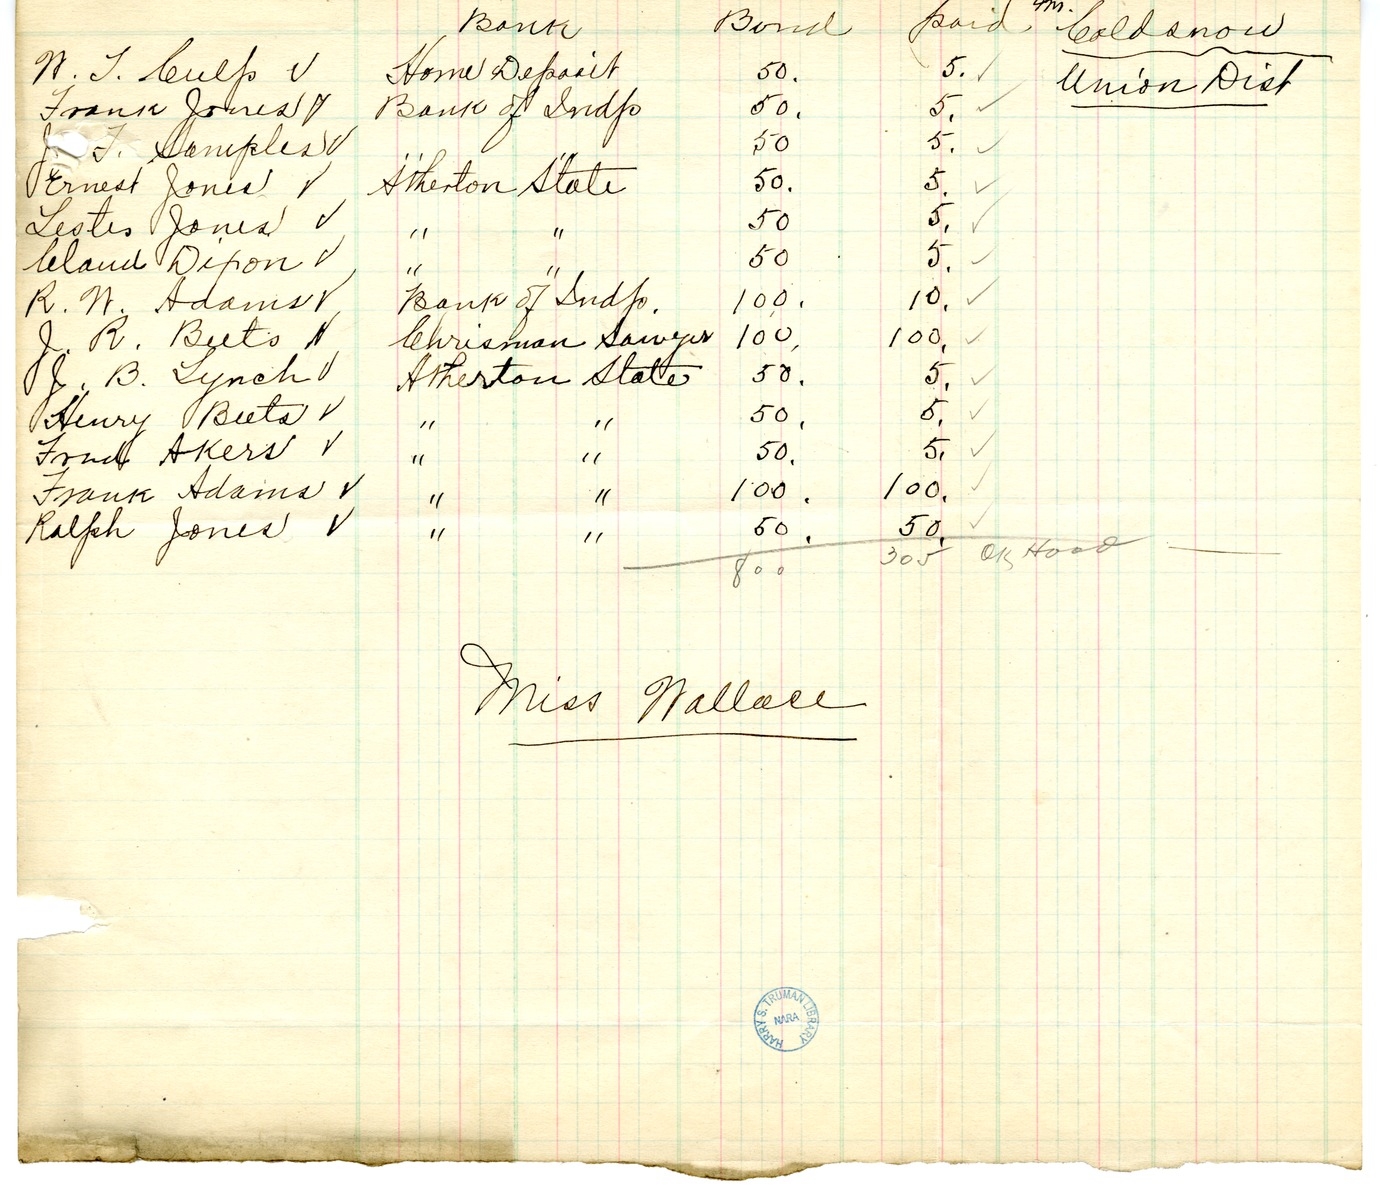 Bank Bond paid Mr. Coldsnow
W. T. Culp ✓ Home Deposit 50. 5. ✓ Union Dist
Frank Jones ✓ Bank of Indp 50. 5. ✓
J. T. Samples ✓ " " 50 5. ✓
Ernest Jones ✓ Atherton State 50. 5. ✓
Lester Jones ✓ " " 50 5. ✓
Claud Dixon ✓ " " 50 5. ✓
R. W. Adams ✓ Bank of Indp. 100. 10. ✓
J. R. Beets ✓ Chrisman Sawyer 100. 100. ✓
J. B. Lynch ✓ Atherton State 50. 5. ✓
Henry Beets ✓ " " 50. 5. ✓
Fred Akers ✓ " " 50. 5. ✓
Frank Adams ✓ " " 100. 100. ✓
Ralph Jones ✓ " " 50. 50. ✓
800 305 OK Hood
Miss Wallace
HARRY S. TRUMAN LIBRARY
NARA